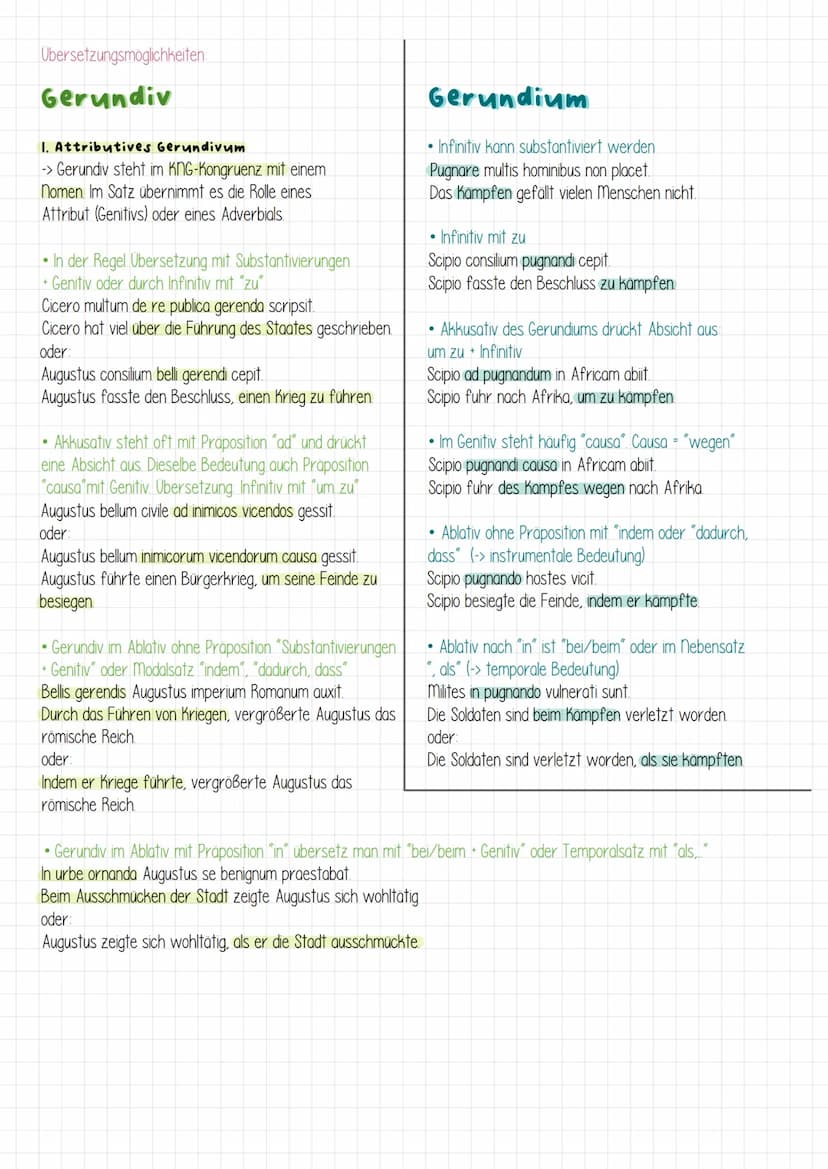 Übersetzungsmöglichkeiten
Gerundiv
1. Attributives Gerundivum
-> Gerundiv steht im KNG-Kongruenz mit einem
Nomen. Im Satz übernimmt es die Rolle eines
Attribut (Genitivs) oder eines Adverbials.
• In der Regel Übersetzung mit Substantivierungen
+ Genitiv oder durch Infinitiv mit "zu"
Cicero multum de re publica gerenda scripsit.
Cicero hat viel über die Führung des Staates geschrieben.
oder:
Augustus consilium belli gerendi cepit.
Augustus fasste den Beschluss, einen Krieg zu führen.
• Akkusativ steht oft mit Präposition "ad" und drückt
eine Absicht aus. Dieselbe Bedeutung auch Präposition
"causa"mit Genitiv. Übersetzung: Infinitiv mit "um...zu"
Augustus bellum civile ad inimicos vicendos gessit.
oder:
Augustus bellum inimicorum vicendorum causa gessit.
Augustus führte einen Bürgerkrieg, um seine Feinde zu
besiegen.
• Gerundiv im Ablativ ohne Präposition "Substantivierungen
+ Genitiv" oder Modalsatz "indem", "dadurch, dass"
Bellis gerendis Augustus imperium Romanum auxit.
Durch das Führen von Kriegen, vergrößerte Augustus das
römische Reich.
oder:
Indem er Kriege führte, vergrößerte Augustus das
römische Reich.
• Gerundiv im Ablativ mit Präposition "in" übersetz man mit "bei/beim + Genitiv" oder Temporalsatz mit "als,..."
In urbe ornanda Augustus se benignum praestabat.
Beim Ausschmücken der Stadt zeigte Augustus sich wohltätig
oder:
Augustus zeigte sich wohltätig, als er die Stadt ausschmückte.
Gerundium
• Infinitiv kann substantiviert werden
Pugnare multis hominibus non placet.
Das Kämpfen gefällt vielen Menschen nicht.
• Infinitiv mit zu
Scipio consilium pugnandi cepit.
Scipio fasste den Beschluss zu kämpfen.
• Akkusativ des Gerundiums drückt Absicht aus:
um zu + Infinitiv
Scipio ad pugnandum in Africam abiit.
Scipio fuhr nach Afrika, um zu kämpfen.
• Im Genitiv steht häufig "causa". Causa = "wegen"
Scipio pugnandi causa in Africam abiit.
Scipio fuhr des Kampfes wegen nach Afrika.
• Ablativ ohne Präposition mit "indem oder "dadurch,
dass" (-> instrumentale Bedeutung)
Scipio pugnando hostes vicit.
Scipio besiegte die Feinde, indem er kämpfte.
• Ablativ nach "in" ist "bei/beim" oder im Nebensatz
", als" (-> temporale Bedeutung)
Milites in pugnando vulnerati sunt.
Die Soldaten sind beim Kämpfen verletzt worden.
oder:
Die Soldaten sind verletzt worden, als sie kämpften.